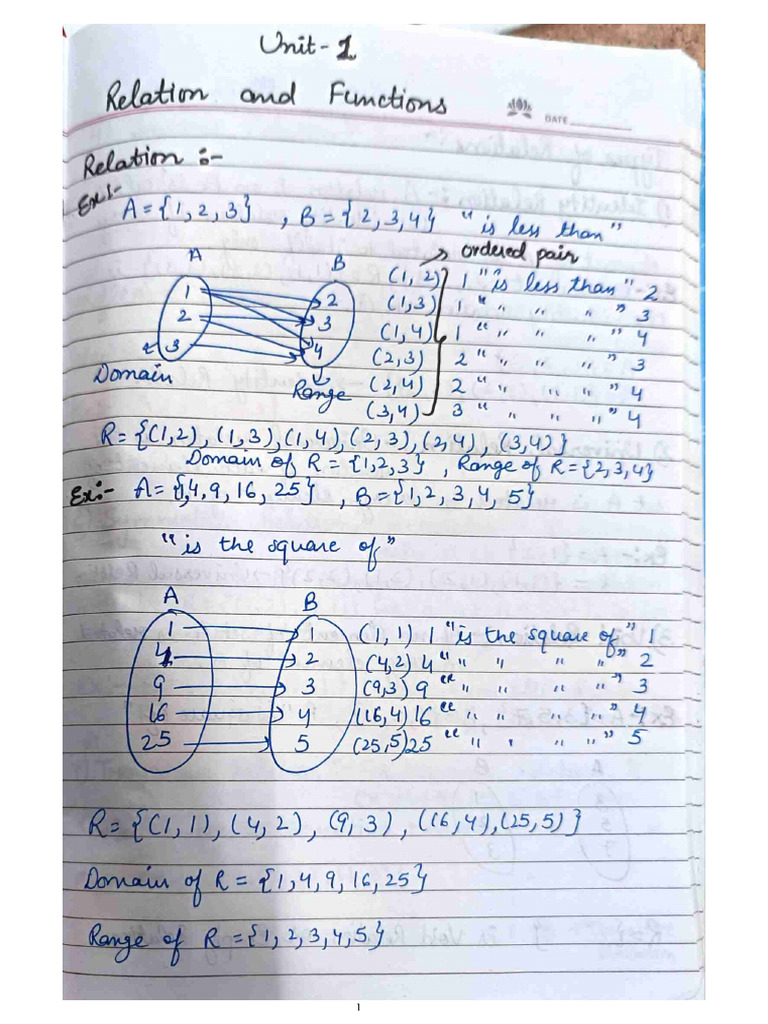 Unit-1
Relation and Functions
DATE
Relation :-
Ex:-
A = {1, 2, 3} , B = {2, 3, 4} "is less than"
→ ordered pair
A B
1 2 (1, 2) 1 "is less than" 2
2 3 (1, 3) 1 " " " " 3
3 4 (1, 4) 1 " " " " 4
(2, 3) 2 " " " " 3
Domain Range (2, 4) 2 " " " " 4
(3, 4) 3 " " " " 4
R = {(1,2), (1,3), (1,4), (2,3), (2,4), (3,4)}
Domain of R = {1,2,3} , Range of R = {2,3,4}
Ex:- A = {1,4,9,16,25} , B = {1, 2, 3, 4, 5}
"is the square of"
A B
1 1 (1, 1) 1 "is the square of" 1
4 2 (4,2) 4 " " " " 2
9 3 (9,3) 9 " " " " 3
16 4 (16,4) 16 " " " " 4
25 5 (25,5) 25 " " " " 5
R = {(1,1), (4,2), (9,3), (16,4), (25,5)}
Domain of R = {1,4,9,16,25}
Range of R = {1,2,3,4,5}
1